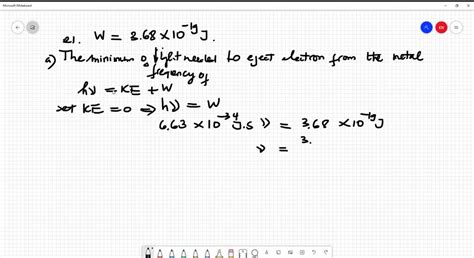 Microsoft Whiteboard
e1. W = 3.68 × 10⁻¹⁹ J.
a) The minimum frequency of light needed to eject electron from the metal
hν = KE + W
set KE = 0 ⇒ hν = W
6.63 × 10⁻³⁴ J.s ν = 3.68 × 10⁻¹⁹ J
ν = 3.